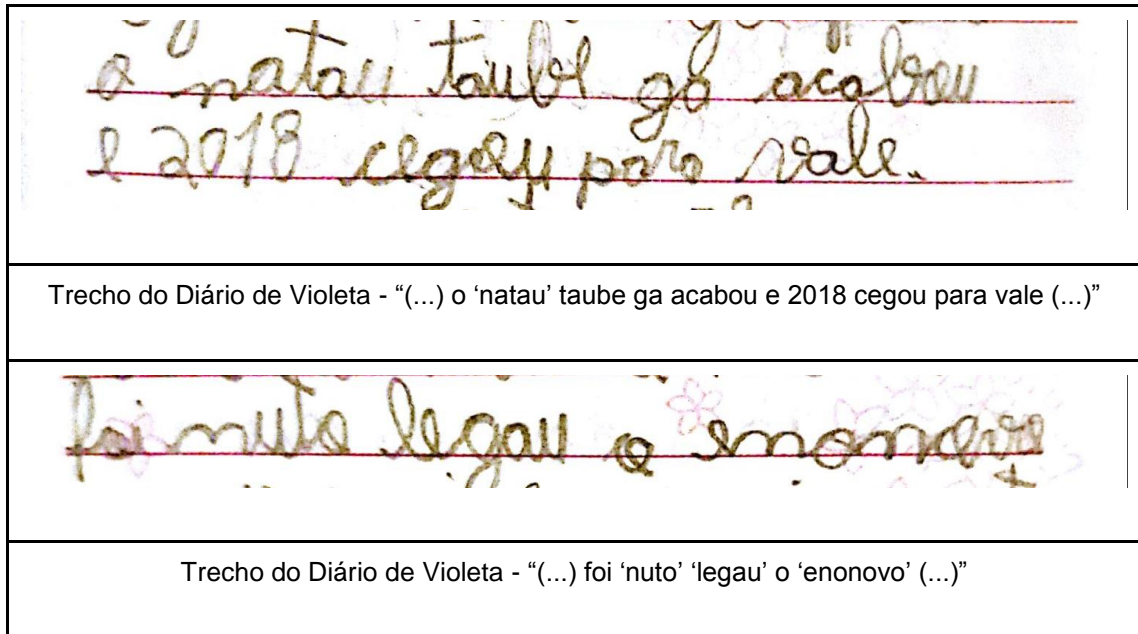 o natau taube ga acabou
e 2018 cegou para vale.
Trecho do Diário de Violeta - “(...) o ‘natau’ taube ga acabou e 2018 cegou para vale (...)”
foi nuto legau o enonovo
Trecho do Diário de Violeta - “(...) foi ‘nuto’ ‘legau’ o ‘enonovo’ (...)”